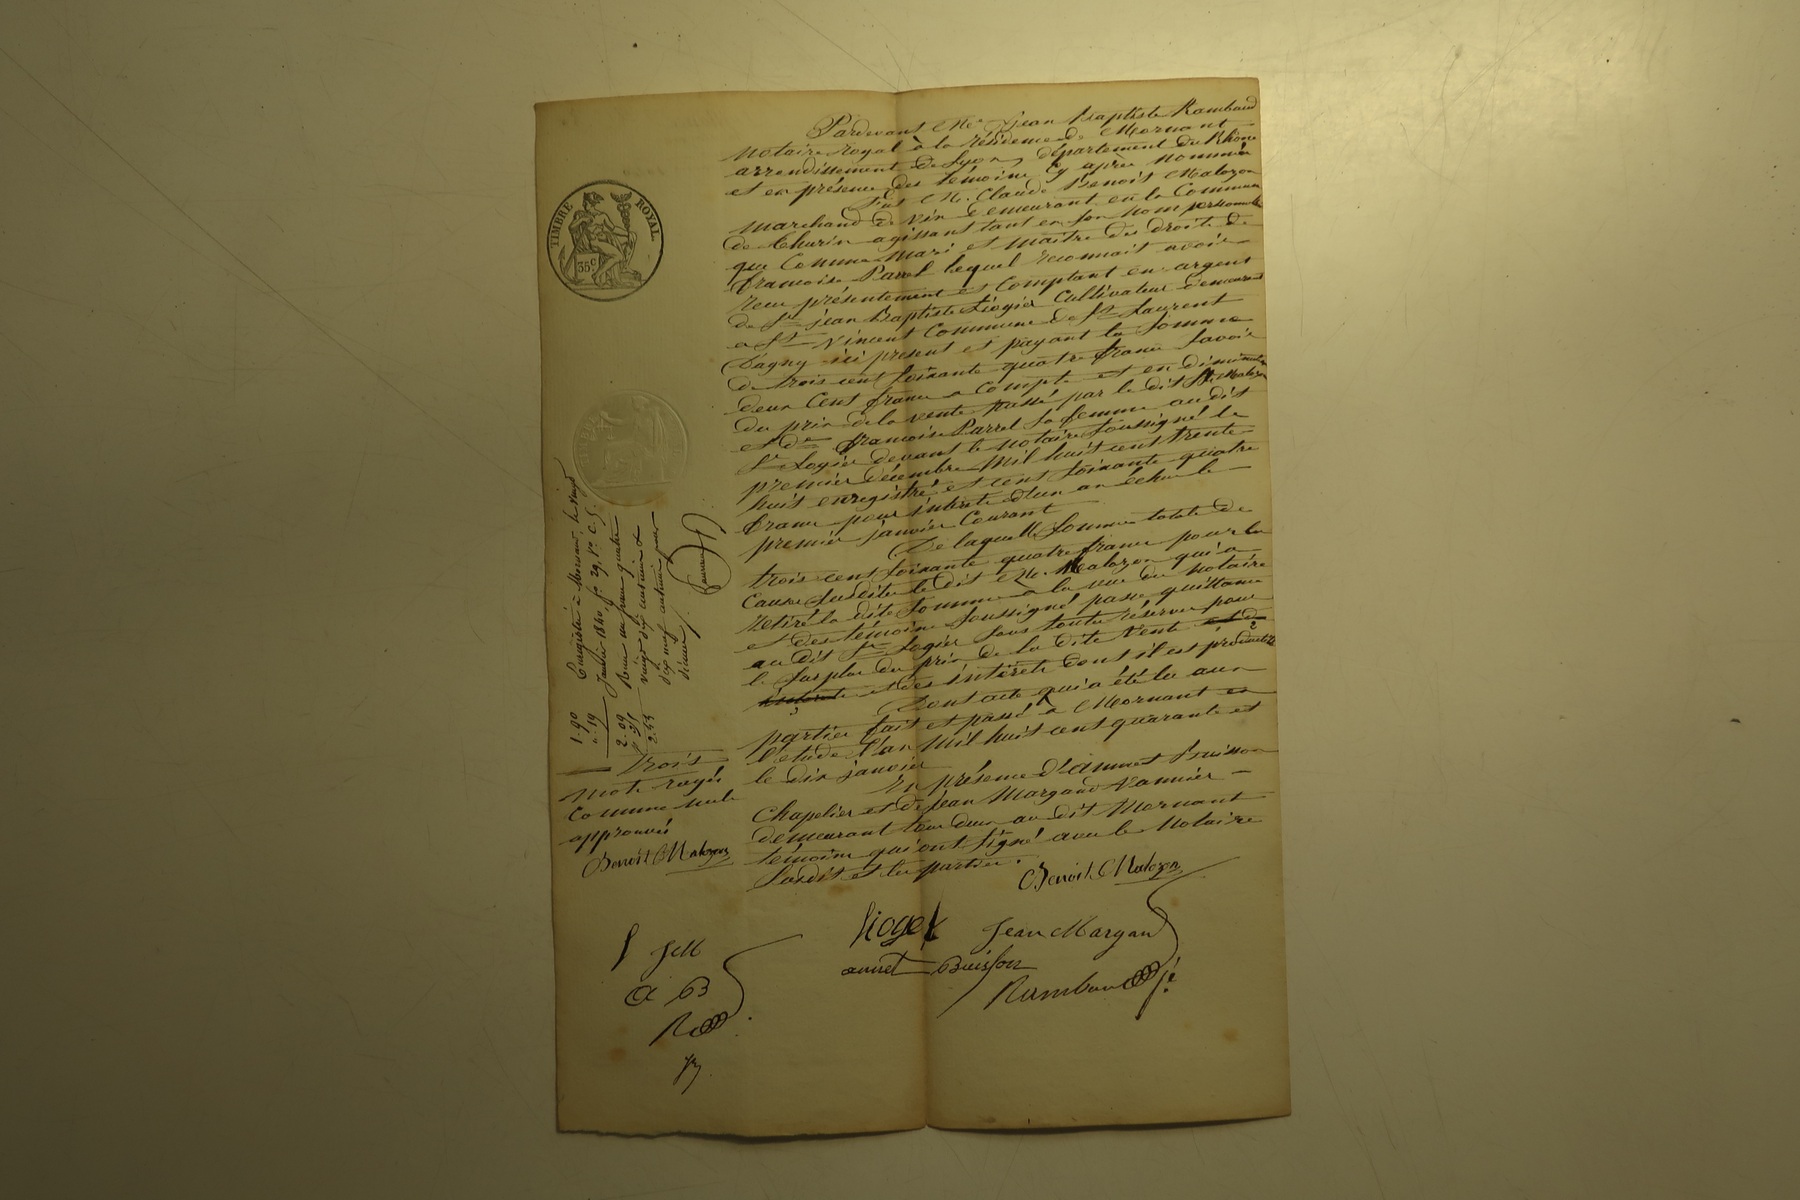 TIMBRE ROYAL
35c
Pardevant Me Jean Baptiste Rambaud
notaire royal à la résidence de Mornant
arrondissement de Lyon, département du Rhône
et en présence des témoins cy après nommés
Fut M. Claude Benoit Malozon
marchand de vin demeurant en la Commune
de Thurin agissant tant en son nom personnel
que comme mari et maitre des droits de
francoise Parrel lequel reconnait avoir
recu présentement et comptant en argent
du Sr jean Baptiste Liogier Cultivateur demeurant
a St Vincent Commune de St Laurent
D'agny ici présent et payant la somme
de trois cent soixante quatre francs savoir
deux cent francs a compte et en diminution
du prix de la vente passée par le dit M. Malozon
et de francoise Parrel sa femme au dit
Sr Logier devant le notaire soussigné le
premier décembre mil huit cent trente
huit enregistré et cent soixante quatre
francs pour intérêts d'un an échu le
premier janvier Courant
De laquelle somme totale de
trois cent soixante quatre francs pour la
cause susdite le dit M. Malozon qui a
retiré la dite somme a la vue du notaire
et des témoins soussigné passe quittance
au dit Sr Logier sous toute réserve pour
le surplus du prix de la dite vente et des
intérêts et des intérêts dont il est productible
Dont acte qui a été lu aux
parties fait et passé a Mornant en
l'étude l'an mil huit cent quarante et
le dix janvier
En présence d'annet Buisson
Chapelier et de Jean Margand Vannier
demeurant tous deux au dit Mornant
témoins qui ont signé avec le Notaire
susdit et les parties.
Enregistré à Mornant, le vingt
Janvier 1840, fo 29, Vo C. 5.
Reçu un franc quatre
vingt dix centimes &
dix neuf centimes pour
décime
1.90
".19
2.09
Trois
mots rayés
comme nuls
approuvés
Benoit Malozon
Benoit Malozon
Lioger
Jean Margand
annet Buisson
Rambaud
JM
a B
R